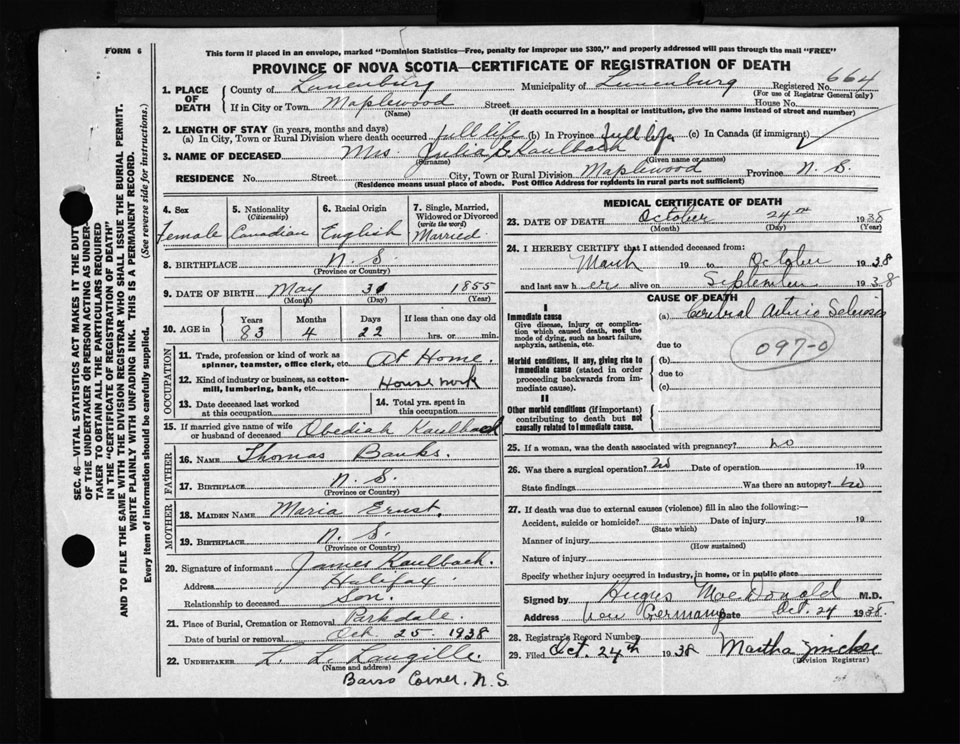 FORM 6
This form if placed in an envelope, marked "Dominion Statistics—Free, penalty for improper use $300," and properly addressed will pass through the mail "FREE"
PROVINCE OF NOVA SCOTIA—CERTIFICATE OF REGISTRATION OF DEATH
SEC. 46—VITAL STATISTICS ACT MAKES IT THE DUTY
OF THE UNDERTAKER OR PERSON ACTING AS UNDER-
TAKER TO OBTAIN ALL THE PARTICULARS REQUIRED
IN THE "CERTIFICATE OF REGISTRATION OF DEATH"
AND TO FILE THE SAME WITH THE DIVISION REGISTRAR WHO SHALL ISSUE THE BURIAL PERMIT.
WRITE PLAINLY WITH UNFADING INK. THIS IS A PERMANENT RECORD.
Every item of information should be carefully supplied. (See reverse side for instructions.)
1. PLACE OF DEATH County of Lunenburg Municipality of Lunenburg Registered No. 664
(For use of Registrar General only)
If in City or Town Maplewood Street House No.
(Name) (If death occurred in a hospital or institution, give the name instead of street and number)
2. LENGTH OF STAY (in years, months and days)
(a) In City, Town or Rural Division where death occurred full life (b) In Province full life (c) In Canada (if immigrant)
3. NAME OF DECEASED Mrs. Julia B Kaulback
(Surname) (Given name or names)
RESIDENCE No. Street City, Town or Rural Division Maplewood Province N. S.
(Residence means usual place of abode. Post Office Address for residents in rural parts not sufficient)
4. Sex Female
5. Nationality (Citizenship) Canadian
6. Racial Origin English
7. Single, Married, Widowed or Divorced (write the word) Married
8. BIRTHPLACE N. S.
(Province or Country)
9. DATE OF BIRTH May 31 1855
(Month) (Day) (Year)
10. AGE in Years Months Days If less than one day old
83 4 22 hrs. or min.
OCCUPATION
11. Trade, profession or kind of work as spinner, teamster, office clerk, etc. At Home.
12. Kind of industry or business, as cotton-mill, lumbering, bank, etc. House work
13. Date deceased last worked at this occupation
14. Total yrs. spent in this occupation
15. If married give name of wife or husband of deceased Obediah Kaulback
FATHER
16. NAME Thomas Banks.
17. BIRTHPLACE N. S.
(Province or Country)
MOTHER
18. MAIDEN NAME Maria Ernst.
19. BIRTHPLACE N. S.
(Province or Country)
20. Signature of informant James Kaulback.
Address Halifax
Relationship to deceased Son.
21. Place of Burial, Cremation or Removal Parkdale.
Date of burial or removal Oct 25. 1938
22. UNDERTAKER L. L. Langille.
(Name and address)
Barss Corner, N. S.
MEDICAL CERTIFICATE OF DEATH
23. DATE OF DEATH October 24th 1938
(Month) (Day) (Year)
24. I HEREBY CERTIFY that I attended deceased from:
March 19 to October 1938
and last saw her alive on September 1938
CAUSE OF DEATH
I
Immediate cause
Give disease, injury or complication which caused death, not the mode of dying, such as heart failure, asphyxia, asthenia, etc.
(a) Cerebral Arterio Sclerosis
due to
Morbid conditions, if any, giving rise to immediate cause (stated in order proceeding backwards from immediate cause).
(b)
due to
(c)
097-0
II
Other morbid conditions (if important) contributing to death but not causally related to immediate cause.
25. If a woman, was the death associated with pregnancy? no
26. Was there a surgical operation? no Date of operation 19
State findings Was there an autopsy? no
27. If death was due to external causes (violence) fill in also the following:—
Accident, suicide or homicide? Date of injury 19
(State which)
Manner of injury
(How sustained)
Nature of injury
Specify whether injury occurred in industry, in home, or in public place
Signed by Hugus MacDonald M.D.
Address New Germany Date Oct. 24 1938.
28. Registrar's Record Number
29. Filed Oct. 24th 1938 Martha
(Division Registrar)